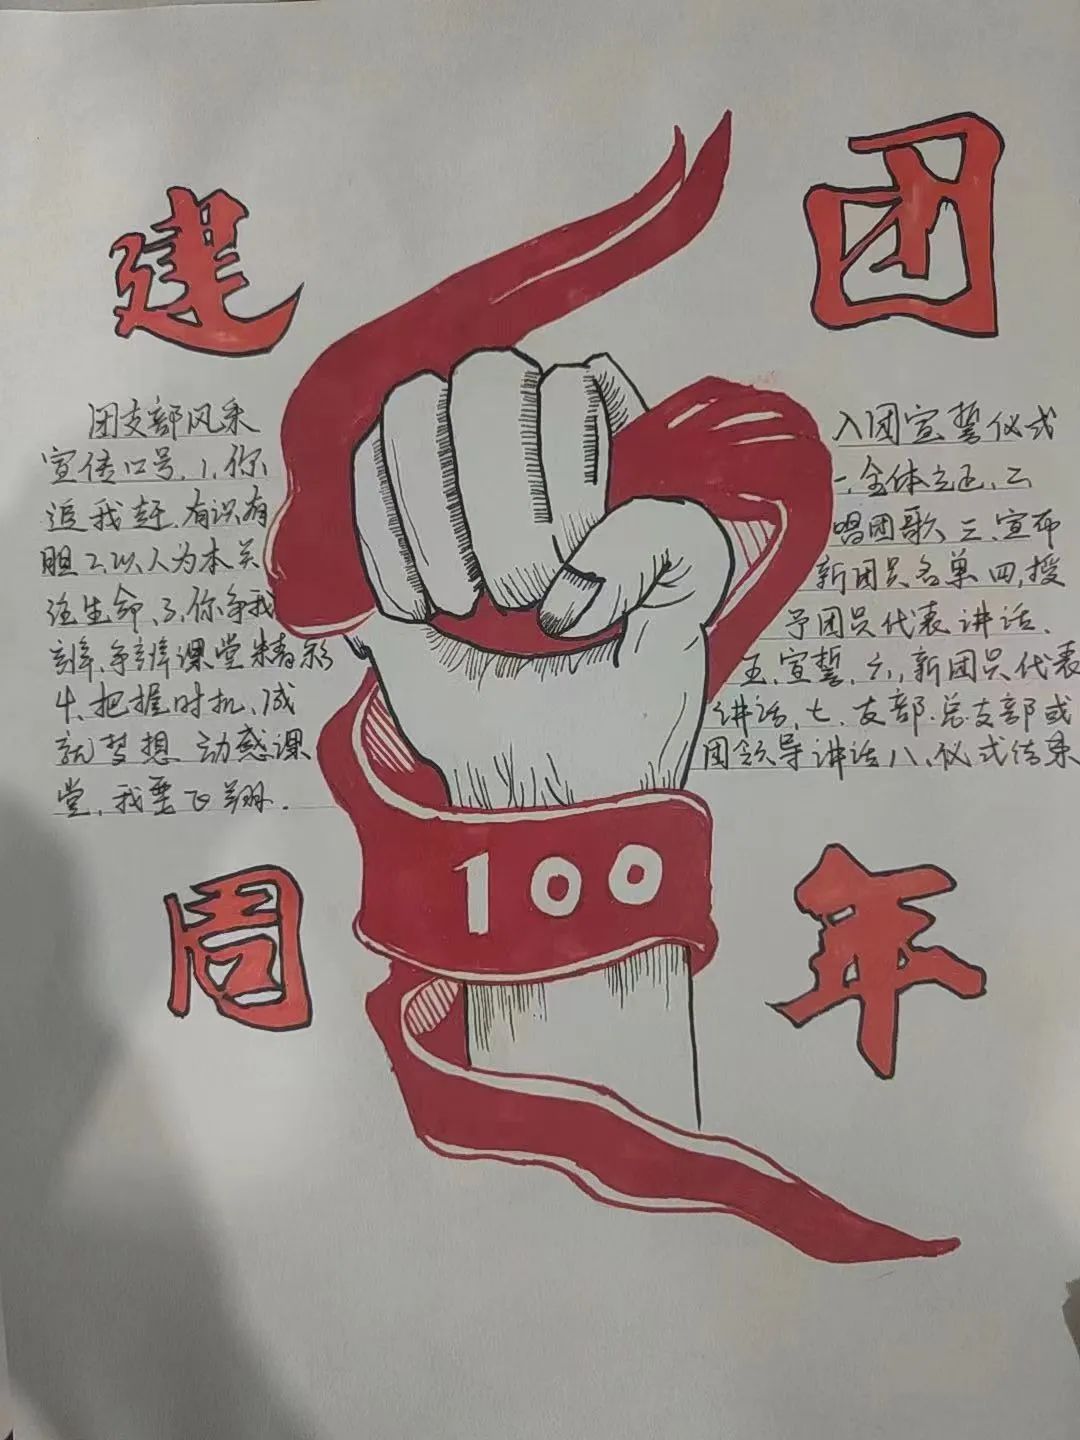 建团
团支部风采
宣传口号.1.你
追我赶.有识有
胆2.以人为本关
注生命.3.你争我
辩.争辩课堂精彩
4.把握时机.成
就梦想 动感课
堂.我要飞翔.
入团宣誓仪式
一.全体立正.二
唱团歌 三.宣布
新团员名单 四.授
予团员代表讲话.
五.宣誓.六.新团员代表
讲话.七.支部.总支部或
团领导讲话 八.仪式结束
100
周年